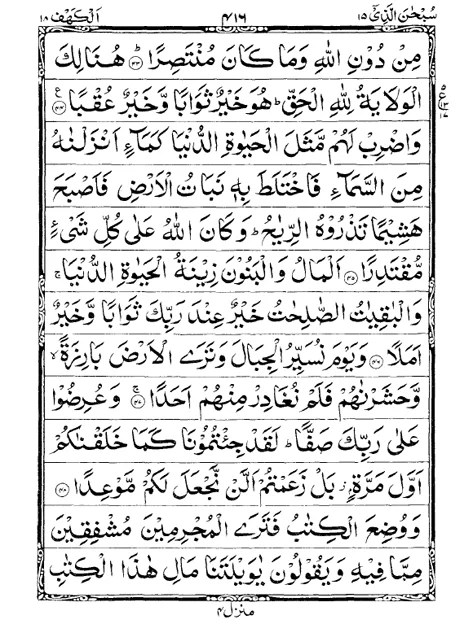 سُبْحٰنَ الَّذِیْۤ ۱۵ ۴۱۶ اَلْکَهْف ۱۸
مِنْ دُوْنِ اللّٰهِ وَمَا كَانَ مُنْتَصِرًا ؕ ﴿۴۳﴾ هُنَالِكَ
الْوَلَايَةُ لِلّٰهِ الْحَقِّ ؕ هُوَ خَيْرٌ ثَوَابًا وَّخَيْرٌ عُقْبًا ﴿۴۴﴾
وَاضْرِبْ لَهُمْ مَّثَلَ الْحَيٰوةِ الدُّنْيَا كَمَآءٍ اَنْزَلْنٰهُ
مِنَ السَّمَآءِ فَاخْتَلَطَ بِهٖ نَبَاتُ الْاَرْضِ فَاَصْبَحَ
هَشِيْمًا تَذْرُوْهُ الرِّيٰحُ ؕ وَكَانَ اللّٰهُ عَلٰى كُلِّ شَىْءٍ
مُّقْتَدِرًا ﴿۴۵﴾ اَلْمَالُ وَالْبَنُوْنَ زِيْنَةُ الْحَيٰوةِ الدُّنْيَا ۚ
وَالْبٰقِيٰتُ الصّٰلِحٰتُ خَيْرٌ عِنْدَ رَبِّكَ ثَوَابًا وَّخَيْرٌ
اَمَلًا ﴿۴۶﴾ وَيَوْمَ نُسَيِّرُ الْجِبَالَ وَتَرَى الْاَرْضَ بَارِزَةً ۙ
وَّحَشَرْنٰهُمْ فَلَمْ نُغَادِرْ مِنْهُمْ اَحَدًا ۚ ﴿۴۷﴾ وَعُرِضُوْا
عَلٰى رَبِّكَ صَفًّا ؕ لَقَدْ جِئْتُمُوْنَا كَمَا خَلَقْنٰكُمْ
اَوَّلَ مَرَّةٍۭ ؗ بَلْ زَعَمْتُمْ اَلَّنْ نَّجْعَلَ لَكُمْ مَّوْعِدًا ﴿۴۸﴾
وَوُضِعَ الْكِتٰبُ فَتَرَى الْمُجْرِمِيْنَ مُشْفِقِيْنَ
مِمَّا فِيْهِ وَيَقُوْلُوْنَ يٰوَيْلَتَنَا مَالِ هٰذَا الْكِتٰبِ
منزل ۴